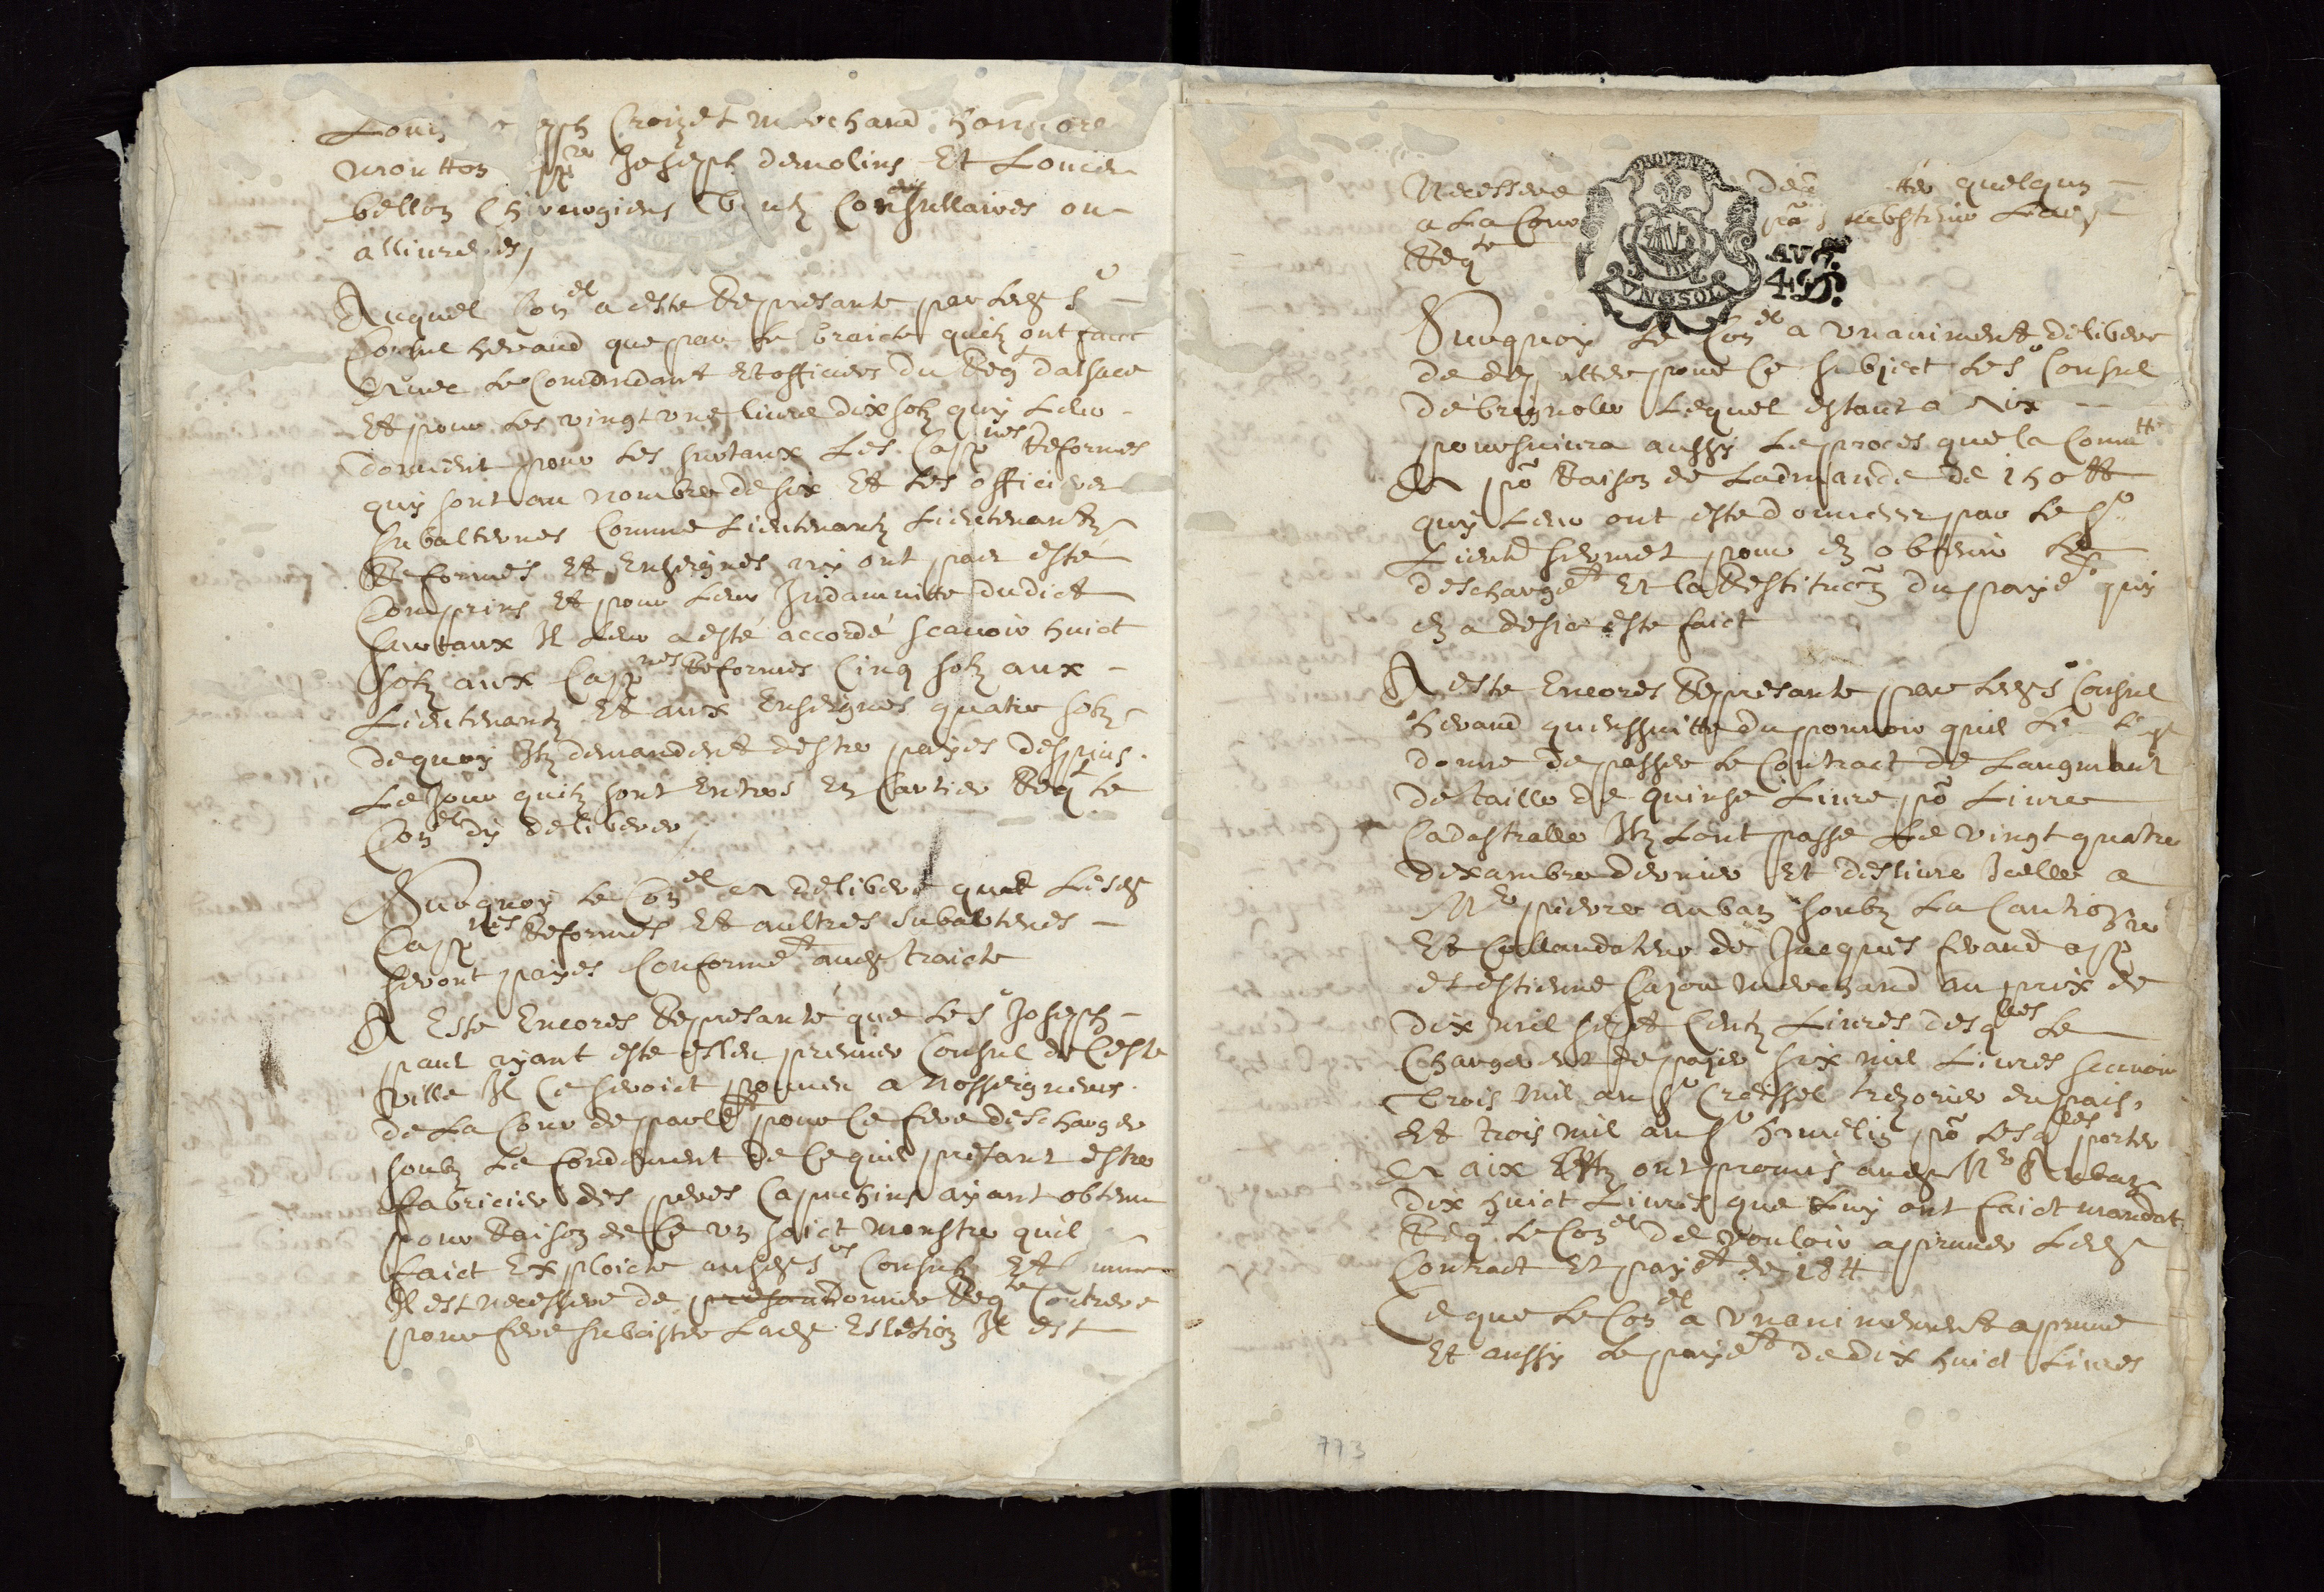 Louis Joseph Croizet marchand honnore
moutton appre Joseph demolins Et Louis
bellon Chirurgiens touts Consullaires ou
allivreres
Auquel Conel a este Represante par lesds srs
Consul heraud que par le traicte quilz ont faict
avec le Comandant et officiers du Regt dalsace
Et pour les vingt une livre dix solz quy leur
donnent pour les surtaux les Cappnes Reformes
quy sont au nombre de six Et les officiers
subalternes Comme Lieutenantz Lieutenantz
Reformes et Enseignes ny ont pas este
Comprins et pour leur Indamnitte dudict
surtaux Il leur a esté accordé scavoir huict
solz aux Cappnes Reformes Cinq solz aux
Lieutenantz Et aux Enseignes quatre solz
dequoy Ilz demandent destre payes despuis
Le Jour quilz sont Entres En Cartier Reqt le
Conel dy deliberer
Surquoy le Conel a deliberé que lesds
Cappnes Reformes Et aultres subalternes
seront payes Conformet audt traicte
A Este Encores Represanté que le sr Joseph
paul ayant este esleu premier Consul de Ceste
ville Il Ce seroict pourveu a Nosseigneurs
de La Cour de parlet pour Ce fere descharger
soubz le fondement de Ce quil pretant estre
fabricier des peres Capuchins ayant obtenu
pour Raison de Ce un faict monstre quil
faict Exploicte ausds srs Consulz Et comme
Il est necessere de donner Reqte Contrere
pour fere subcister Ladt Eslection Il est
Necessere de depputter quelqun
a La Cour pour substenir Ladt
Reqte
Surquoy le Conel a unaniment delibere
de depputter pour Ce subject le sr Consul
de brignolle Lequel estant a Aix
poursuivra aussy le proces que la Commtte
A po Raison de Ladmande de 150 ll
quy leur ont este donnees par le sr
Lieutt pour en obtenir le
descharget Et la Restituon du payet quy
en a desja este faict
A este Encores Represante par lesds srs Consul
heraud quensuitte du pouvoir quil le
donne de passer le Contract de Laugmant
de taille de quinse Livre po Livre
Cadastralle Ilz lont passe le vingt quatre
dexambre dernier Et deslivre Icelle a
Me pierre auban soubz La Caution
Et Collaudateur de Jacques feraud appre
et estienne Cajou marchand au prix de
dix mil sept Centz Livres desqlles le
Chargerent de payer six mil Livres scavoir
trois mil au sr Creissel trezorier du pais
Et trois mil au sr po lesqlles porter
A aix Ilz ont promis audt Me Auban
dix huict Livres que luy ont faict mandat
Reqt le Conel de vouloir aprouver ledt
Contract et payet de 18 ll
Ce que le Conel a unanimement aprouve
Et aussy le payet de dix huict Livres
AVG.
4 D.
773